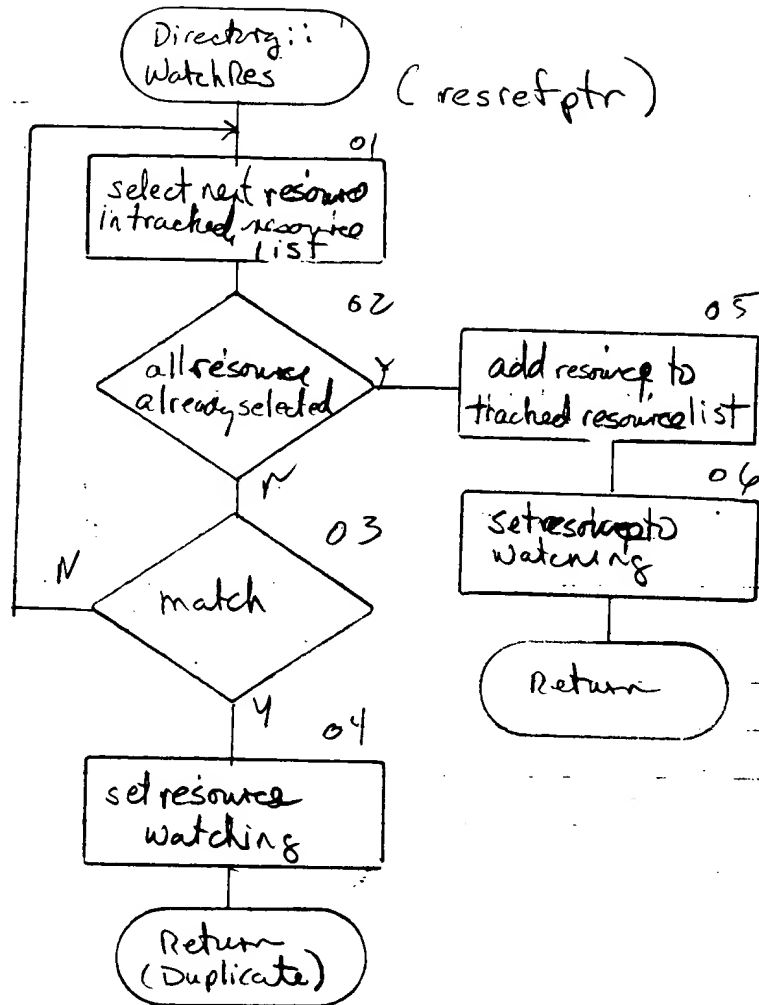 Directory::
WatchRes
(resrefptr)
01
select next resource
in tracked resource
list
02
all resource
already selected
Y
N
05
add resource to
tracked resource list
06
set resource to
watching
Return
03
match
N
Y
04
set resource
watching
Return
(Duplicate)